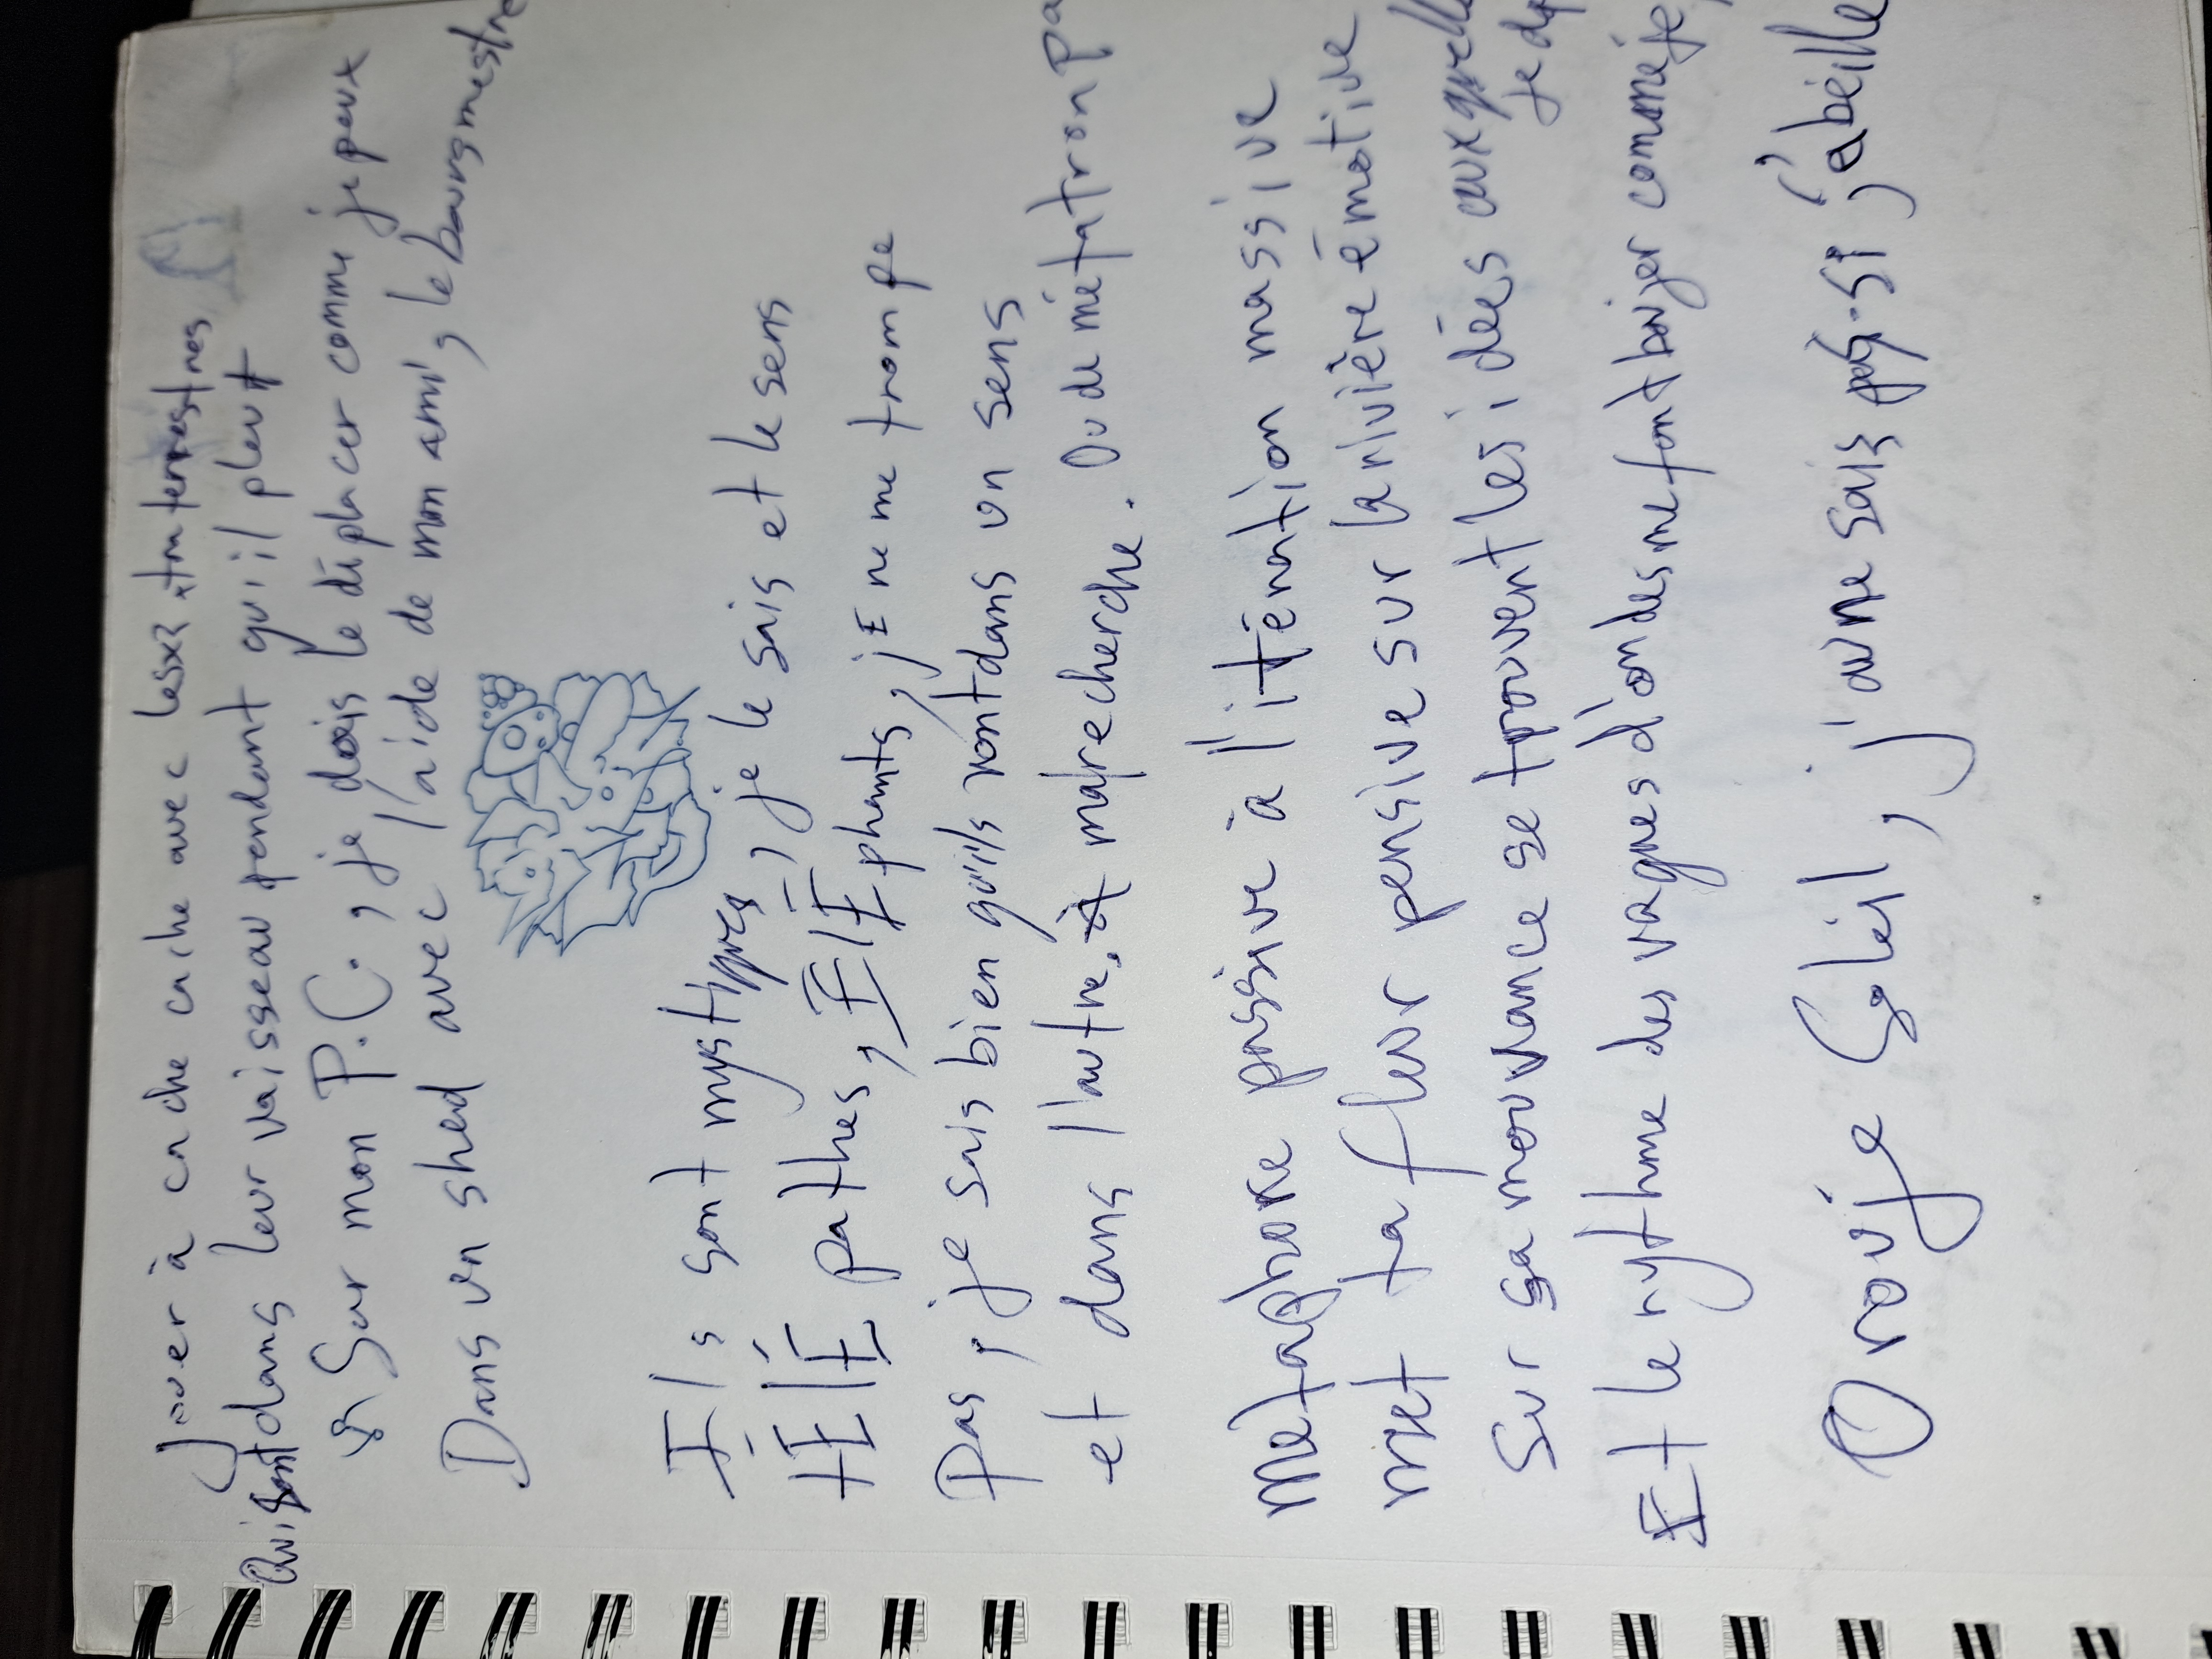 Jouer à cache cache avec les extraterrestres
Qui sont dans leur vaisseau pendant qu'il pleut
Sur mon P.C., je dois le déplacer comme je peux
Dans un shed avec l'aide de mon ami, le bourgmestre
Ils sont mystiques, je le sais et le sens
TÉLÉ pathes, ÉLÉ phants, jE ne me trompe
Pas, je sais bien qu'ils vont dans un sens
et dans l'autre, ma recherche. Ou de métatron pa
Métaphore passive à l'itération massive
met ta fleur pensive sur la rivière émotive
Sur sa mouvance se trouvent les idées auxquelle
je dép
Et le rythme des vagues d'ondes me font bouger comme je
Orouje Soleil, j'aune sais pas si j'abéille